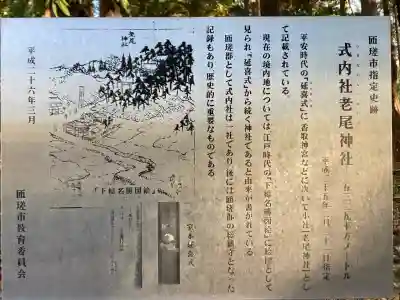 匝瑳市指定史跡
式内社老尾神社
平成二十五年
平安時代の『延喜式』に香取神宮などに次いで小社「老尾神社」とし
て記載されている。
現在の境内地については、江戸時代の『下総名勝図絵』に絵図として
見られ『延喜式』から続く神社であると由来が書かれている。
匝瑳郡として式内社は一社であり、後には匝瑳郡の総鎮守となった
記録もあり、歴史的に重要なものである。
老尾神社
「下総名勝図絵」
平成二十六年三月
匝瑳市教育委員会